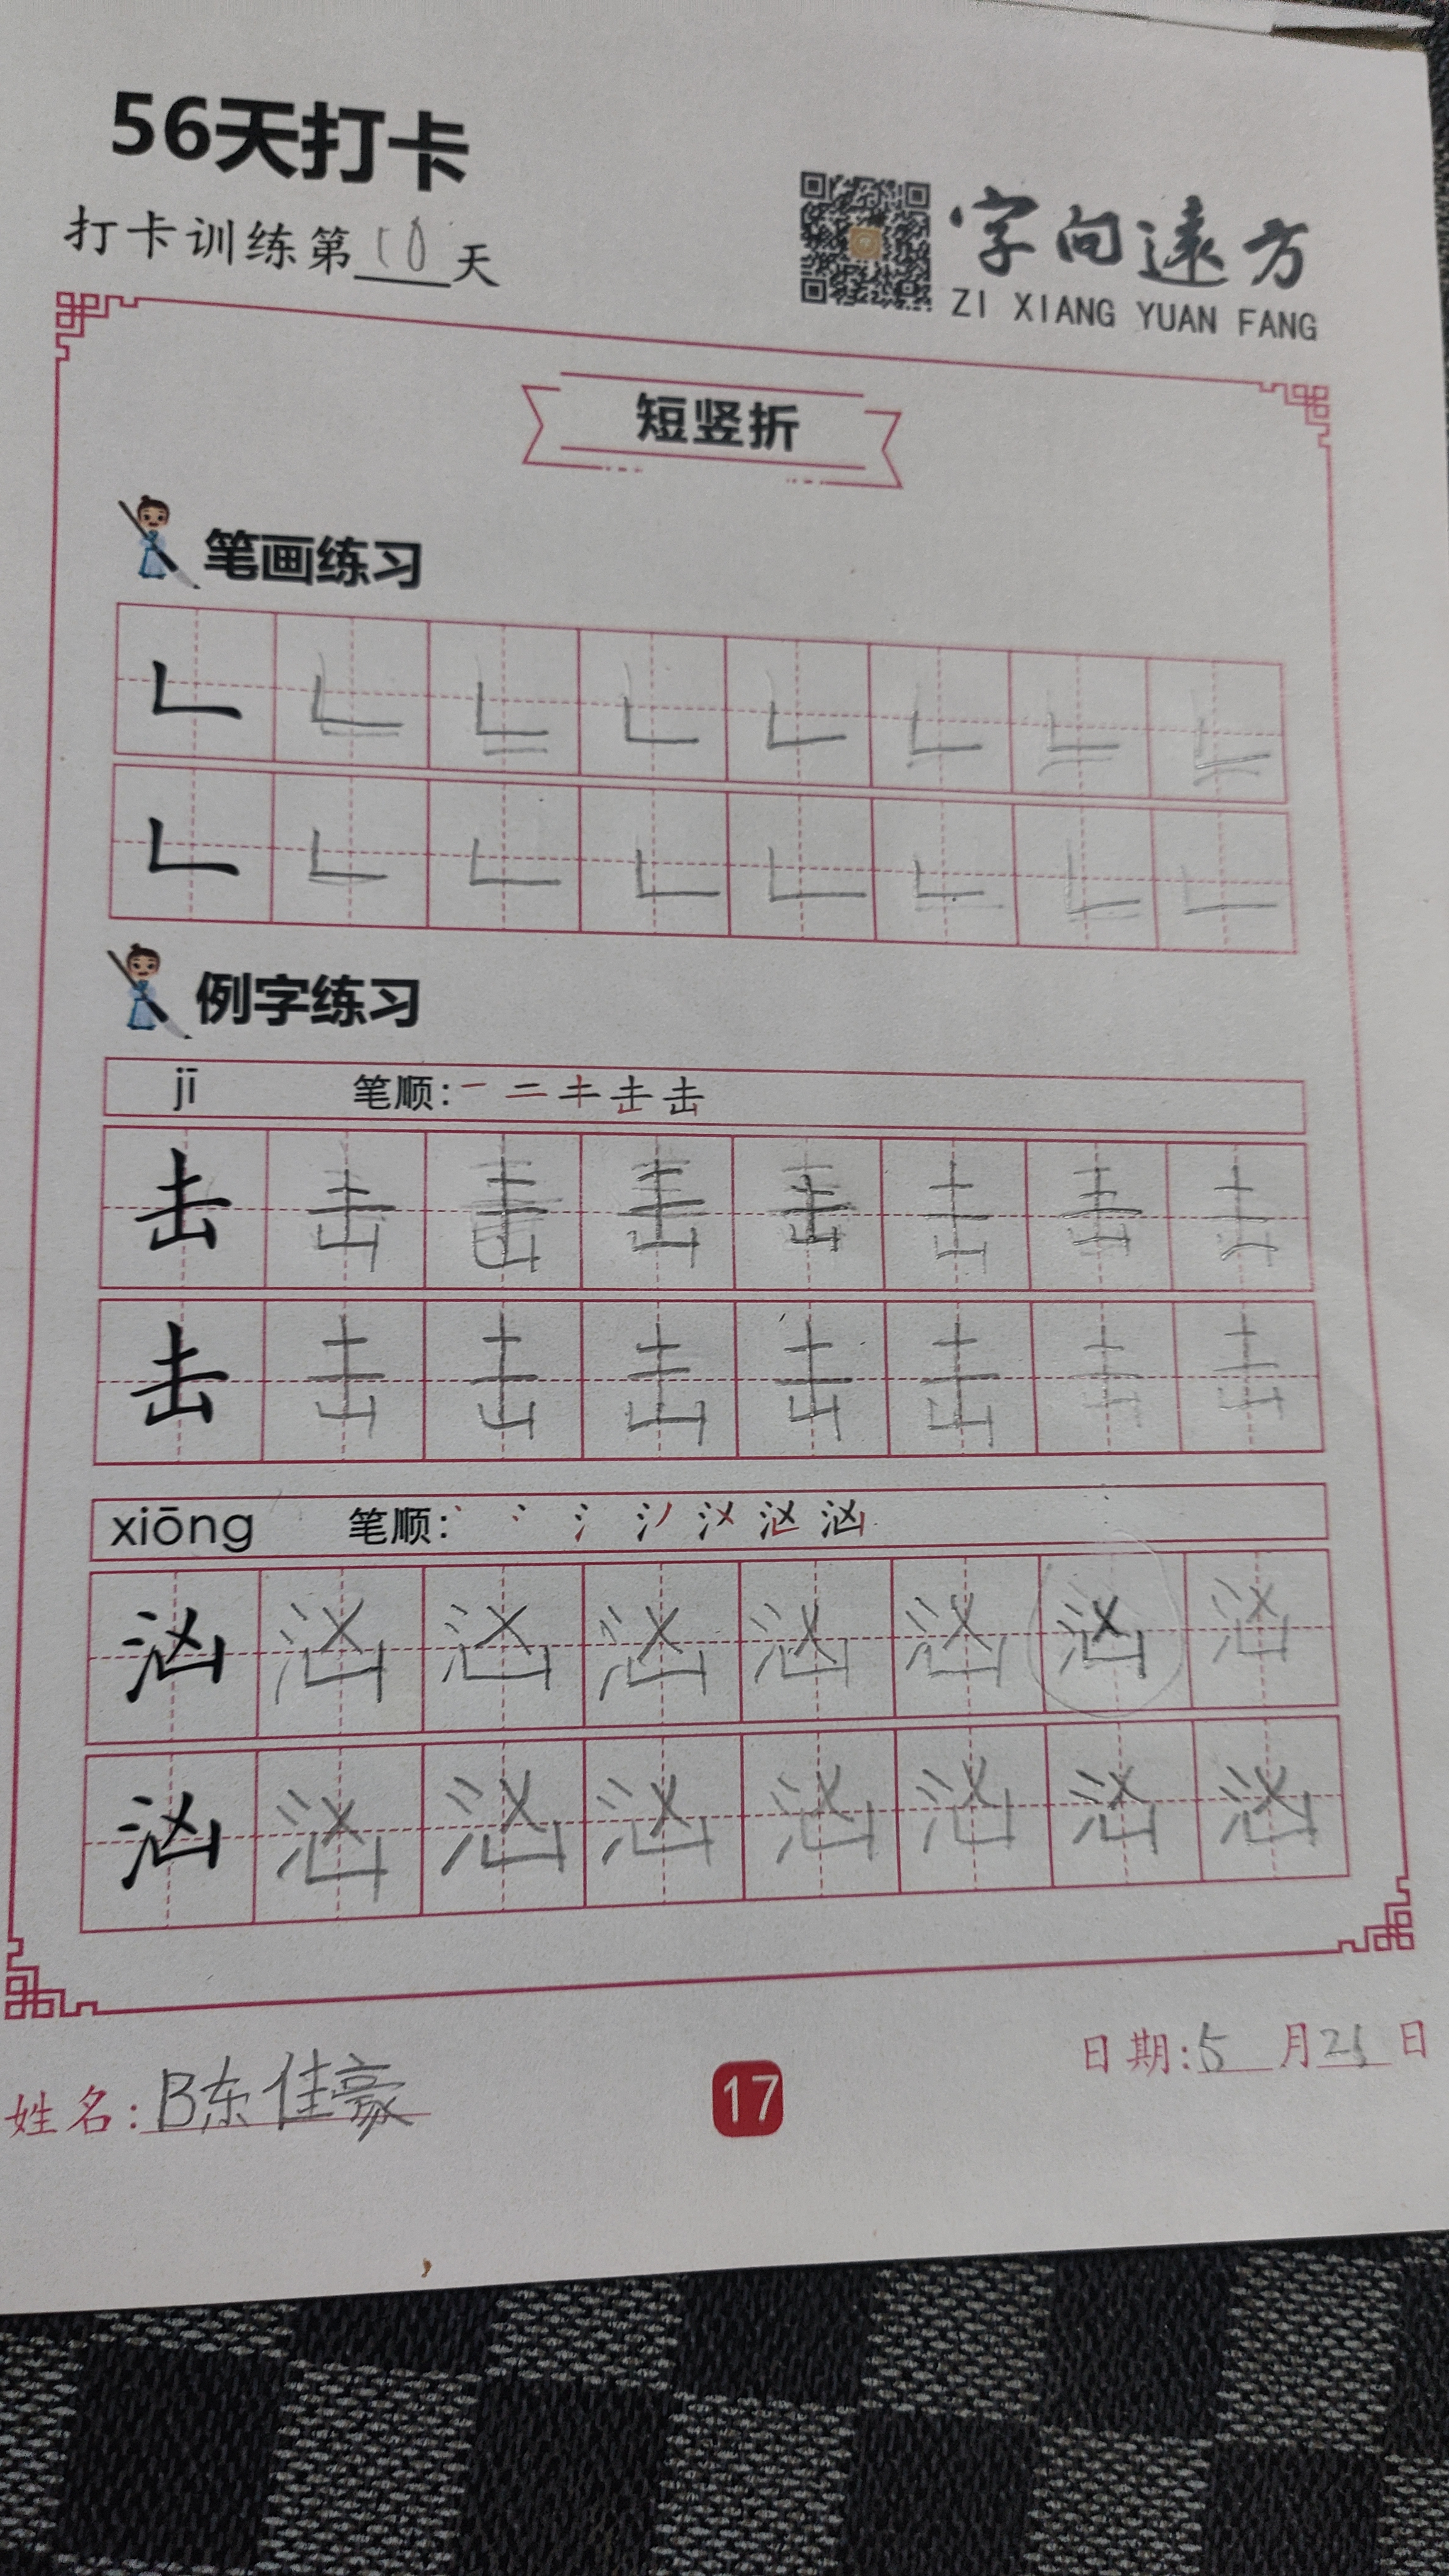 56天打卡
打卡训练第10天
字向遠方
ZI XIANG YUAN FANG
短竖折
笔画练习
𠃊 𠃊 𠃊 𠃊 𠃊 𠃊 𠃊 𠃊
𠃊 𠃊 𠃊 𠃊 𠃊 𠃊 𠃊 𠃊
例字练习
jī 笔顺:
击 击 击 击 击 击 击 击
击 击 击 击 击 击 击 击
xiōng 笔顺:
汹 汹 汹 汹 汹 汹 汹 汹
汹 汹 汹 汹 汹 汹 汹 汹
姓名:陈佳豪
17
日期:5月21日